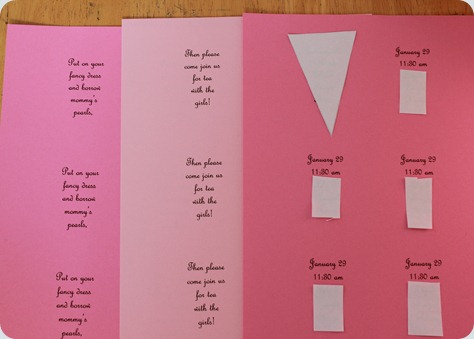 Put on your
fancy dress
and borrow
mommy's
pearls,
Put on your
fancy dress
and borrow
mommy's
pearls,
Put on your
fancy dress
and borrow
mommy's
pearls,
Then please
come join us
for tea
with the
girls!
Then please
come join us
for tea
with the
girls!
Then please
come join us
for tea
with the
girls!
January 29
11:30 am
January 29
11:30 am
January 29
11:30 am
January 29
11:30 am
January 29
11:30 am